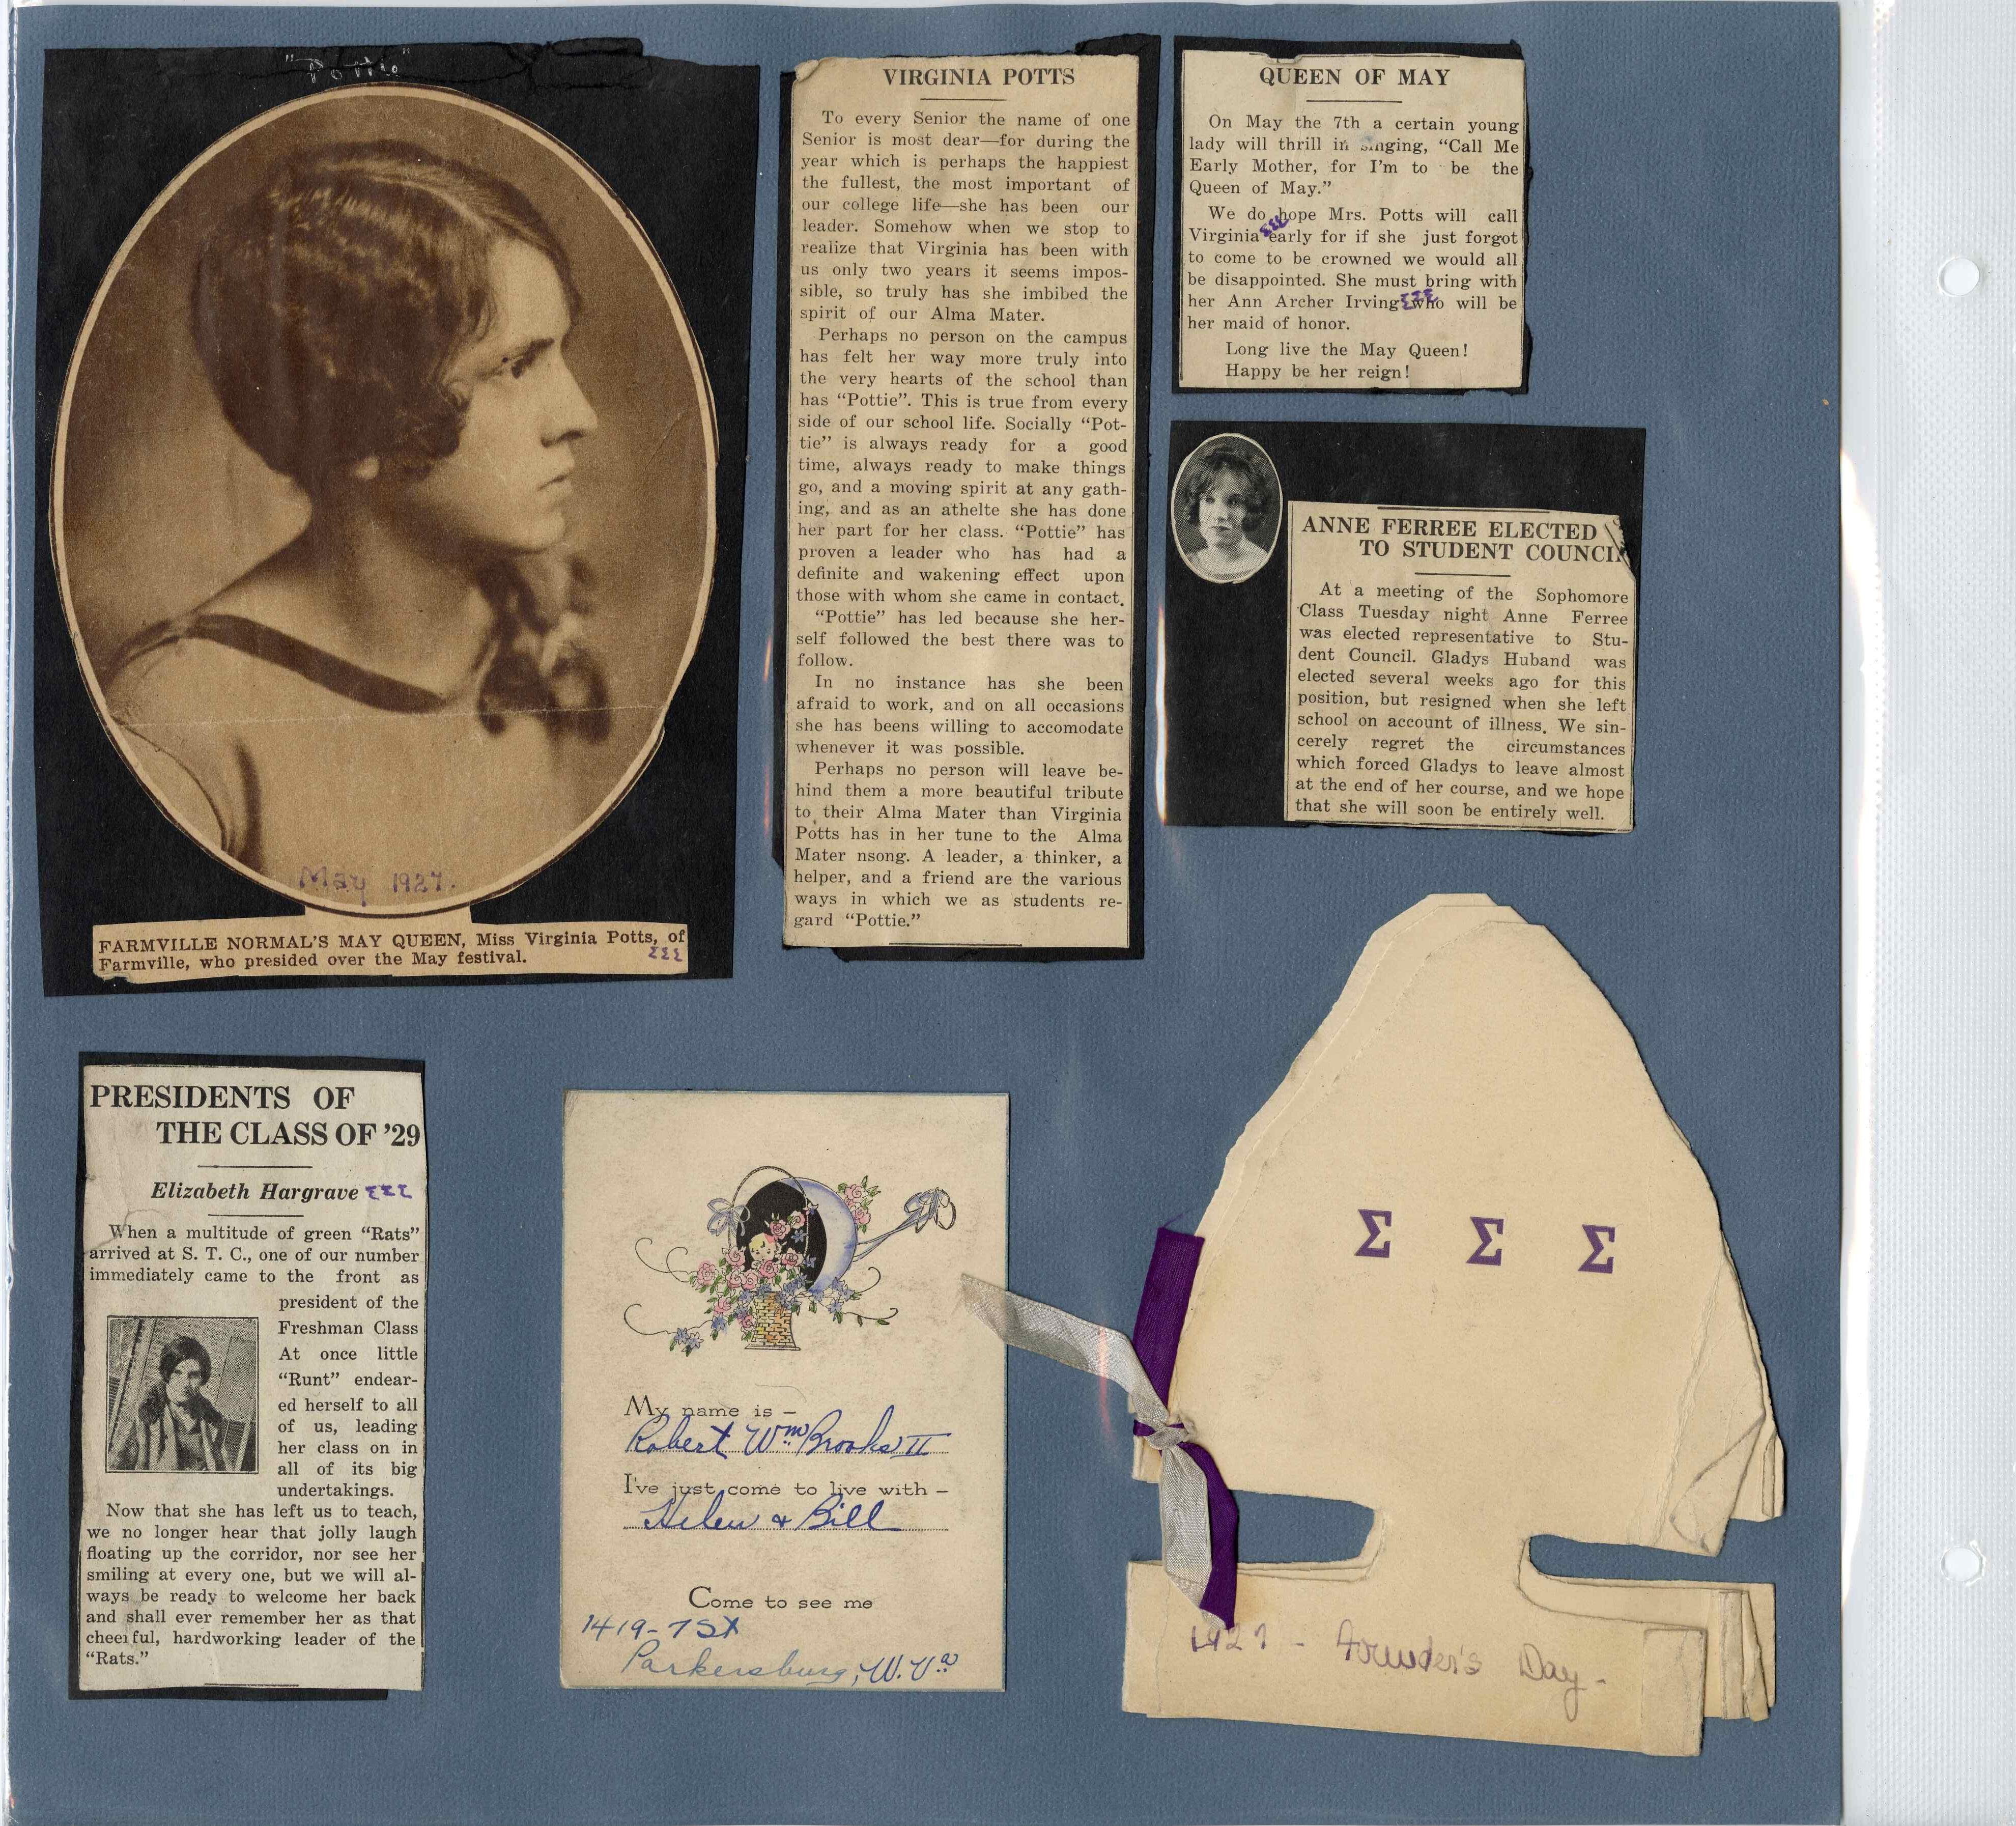 "Potts"
May 1927.
FARMVILLE NORMAL'S MAY QUEEN, Miss Virginia Potts, of
Farmville, who presided over the May festival.
ΣΣΣ
VIRGINIA POTTS
To every Senior the name of one
Senior is most dear—for during the
year which is perhaps the happiest
the fullest, the most important of
our college life—she has been our
leader. Somehow when we stop to
realize that Virginia has been with
us only two years it seems impos-
sible, so truly has she imbibed the
spirit of our Alma Mater.
Perhaps no person on the campus
has felt her way more truly into
the very hearts of the school than
has "Pottie". This is true from every
side of our school life. Socially "Pot-
tie" is always ready for a good
time, always ready to make things
go, and a moving spirit at any gath-
ing, and as an athelte she has done
her part for her class. "Pottie" has
proven a leader who has had a
definite and wakening effect upon
those with whom she came in contact.
"Pottie" has led because she her-
self followed the best there was to
follow.
In no instance has she been
afraid to work, and on all occasions
she has beens willing to accomodate
whenever it was possible.
Perhaps no person will leave be-
hind them a more beautiful tribute
to their Alma Mater than Virginia
Potts has in her tune to the Alma
Mater nsong. A leader, a thinker, a
helper, and a friend are the various
ways in which we as students re-
gard "Pottie."
QUEEN OF MAY
On May the 7th a certain young
lady will thrill in singing, "Call Me
Early Mother, for I'm to be the
Queen of May."
We do hope Mrs. Potts will call
Virginia ΣΣΣ early for if she just forgot
to come to be crowned we would all
be disappointed. She must bring with
her Ann Archer Irving ΣΣΣ who will be
her maid of honor.
Long live the May Queen!
Happy be her reign!
ANNE FERREE ELECTED
TO STUDENT COUNCIL
At a meeting of the Sophomore
Class Tuesday night Anne Ferree
was elected representative to Stu-
dent Council. Gladys Huband was
elected several weeks ago for this
position, but resigned when she left
school on account of illness. We sin-
cerely regret the circumstances
which forced Gladys to leave almost
at the end of her course, and we hope
that she will soon be entirely well.
PRESIDENTS OF
THE CLASS OF '29
Elizabeth Hargrave ΣΣΣ
When a multitude of green "Rats"
arrived at S. T. C., one of our number
immediately came to the front as
president of the
Freshman Class
At once little
"Runt" endear-
ed herself to all
of us, leading
her class on in
all of its big
undertakings.
Now that she has left us to teach,
we no longer hear that jolly laugh
floating up the corridor, nor see her
smiling at every one, but we will al-
ways be ready to welcome her back
and shall ever remember her as that
cheerful, hardworking leader of the
"Rats."
My name is –
Robert Wm Brooks II
I've just come to live with –
Helen & Bill
Come to see me
1419 - 7 St
Parkersburg, W. Va
Σ Σ Σ
1927 - Founder's Day -